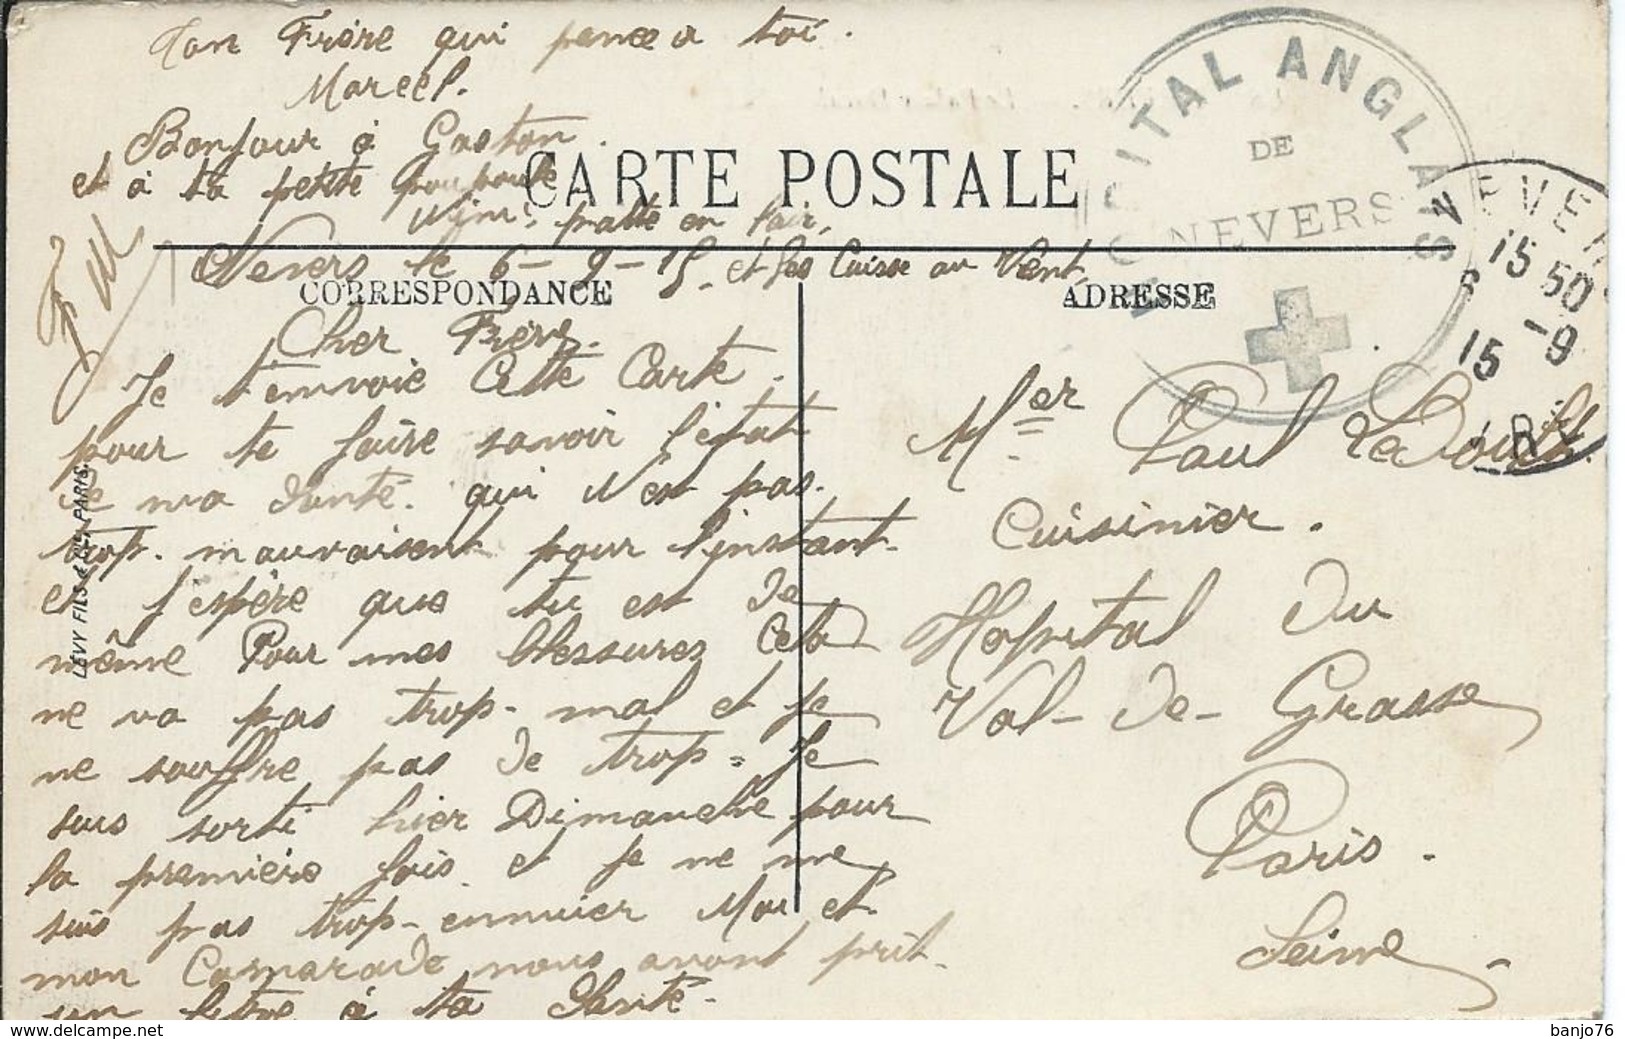 Ton Frère qui pense a toi.
Marcel.
Bonjour à Gaston.
et à ta petite poupoule
patte en l'air,
CARTE POSTALE
HOPITAL ANGLAIS
DE
NEVERS
NEVERS
15 50
6 -9
15
Nevers le 6-9-15. et les Cuisse au Vent
CORRESPONDANCE
ADRESSE
Cher Frère.
Je t'envoie Cette Carte.
pour te faire savoir l'état
de ma Santé. qui n'est pas.
trop. mauvaisent pour l'instant.
et j'espère que tu est de
même Pour mes blessures Cela
ne va pas trop mal et je
ne souffre pas de trop. Je
suis sorti hier Dimanche pour
la première fois et je ne me
suis pas trop ennuier Moi et
mon Camarade nous avont prit.
un litre à ta Santé.
Mer Paul LeDoult.
Cuisinier.
Hopital du
Val-de-Grasse
Paris.
Seine
LEVY FILS & CIE, PARIS.
banjo76